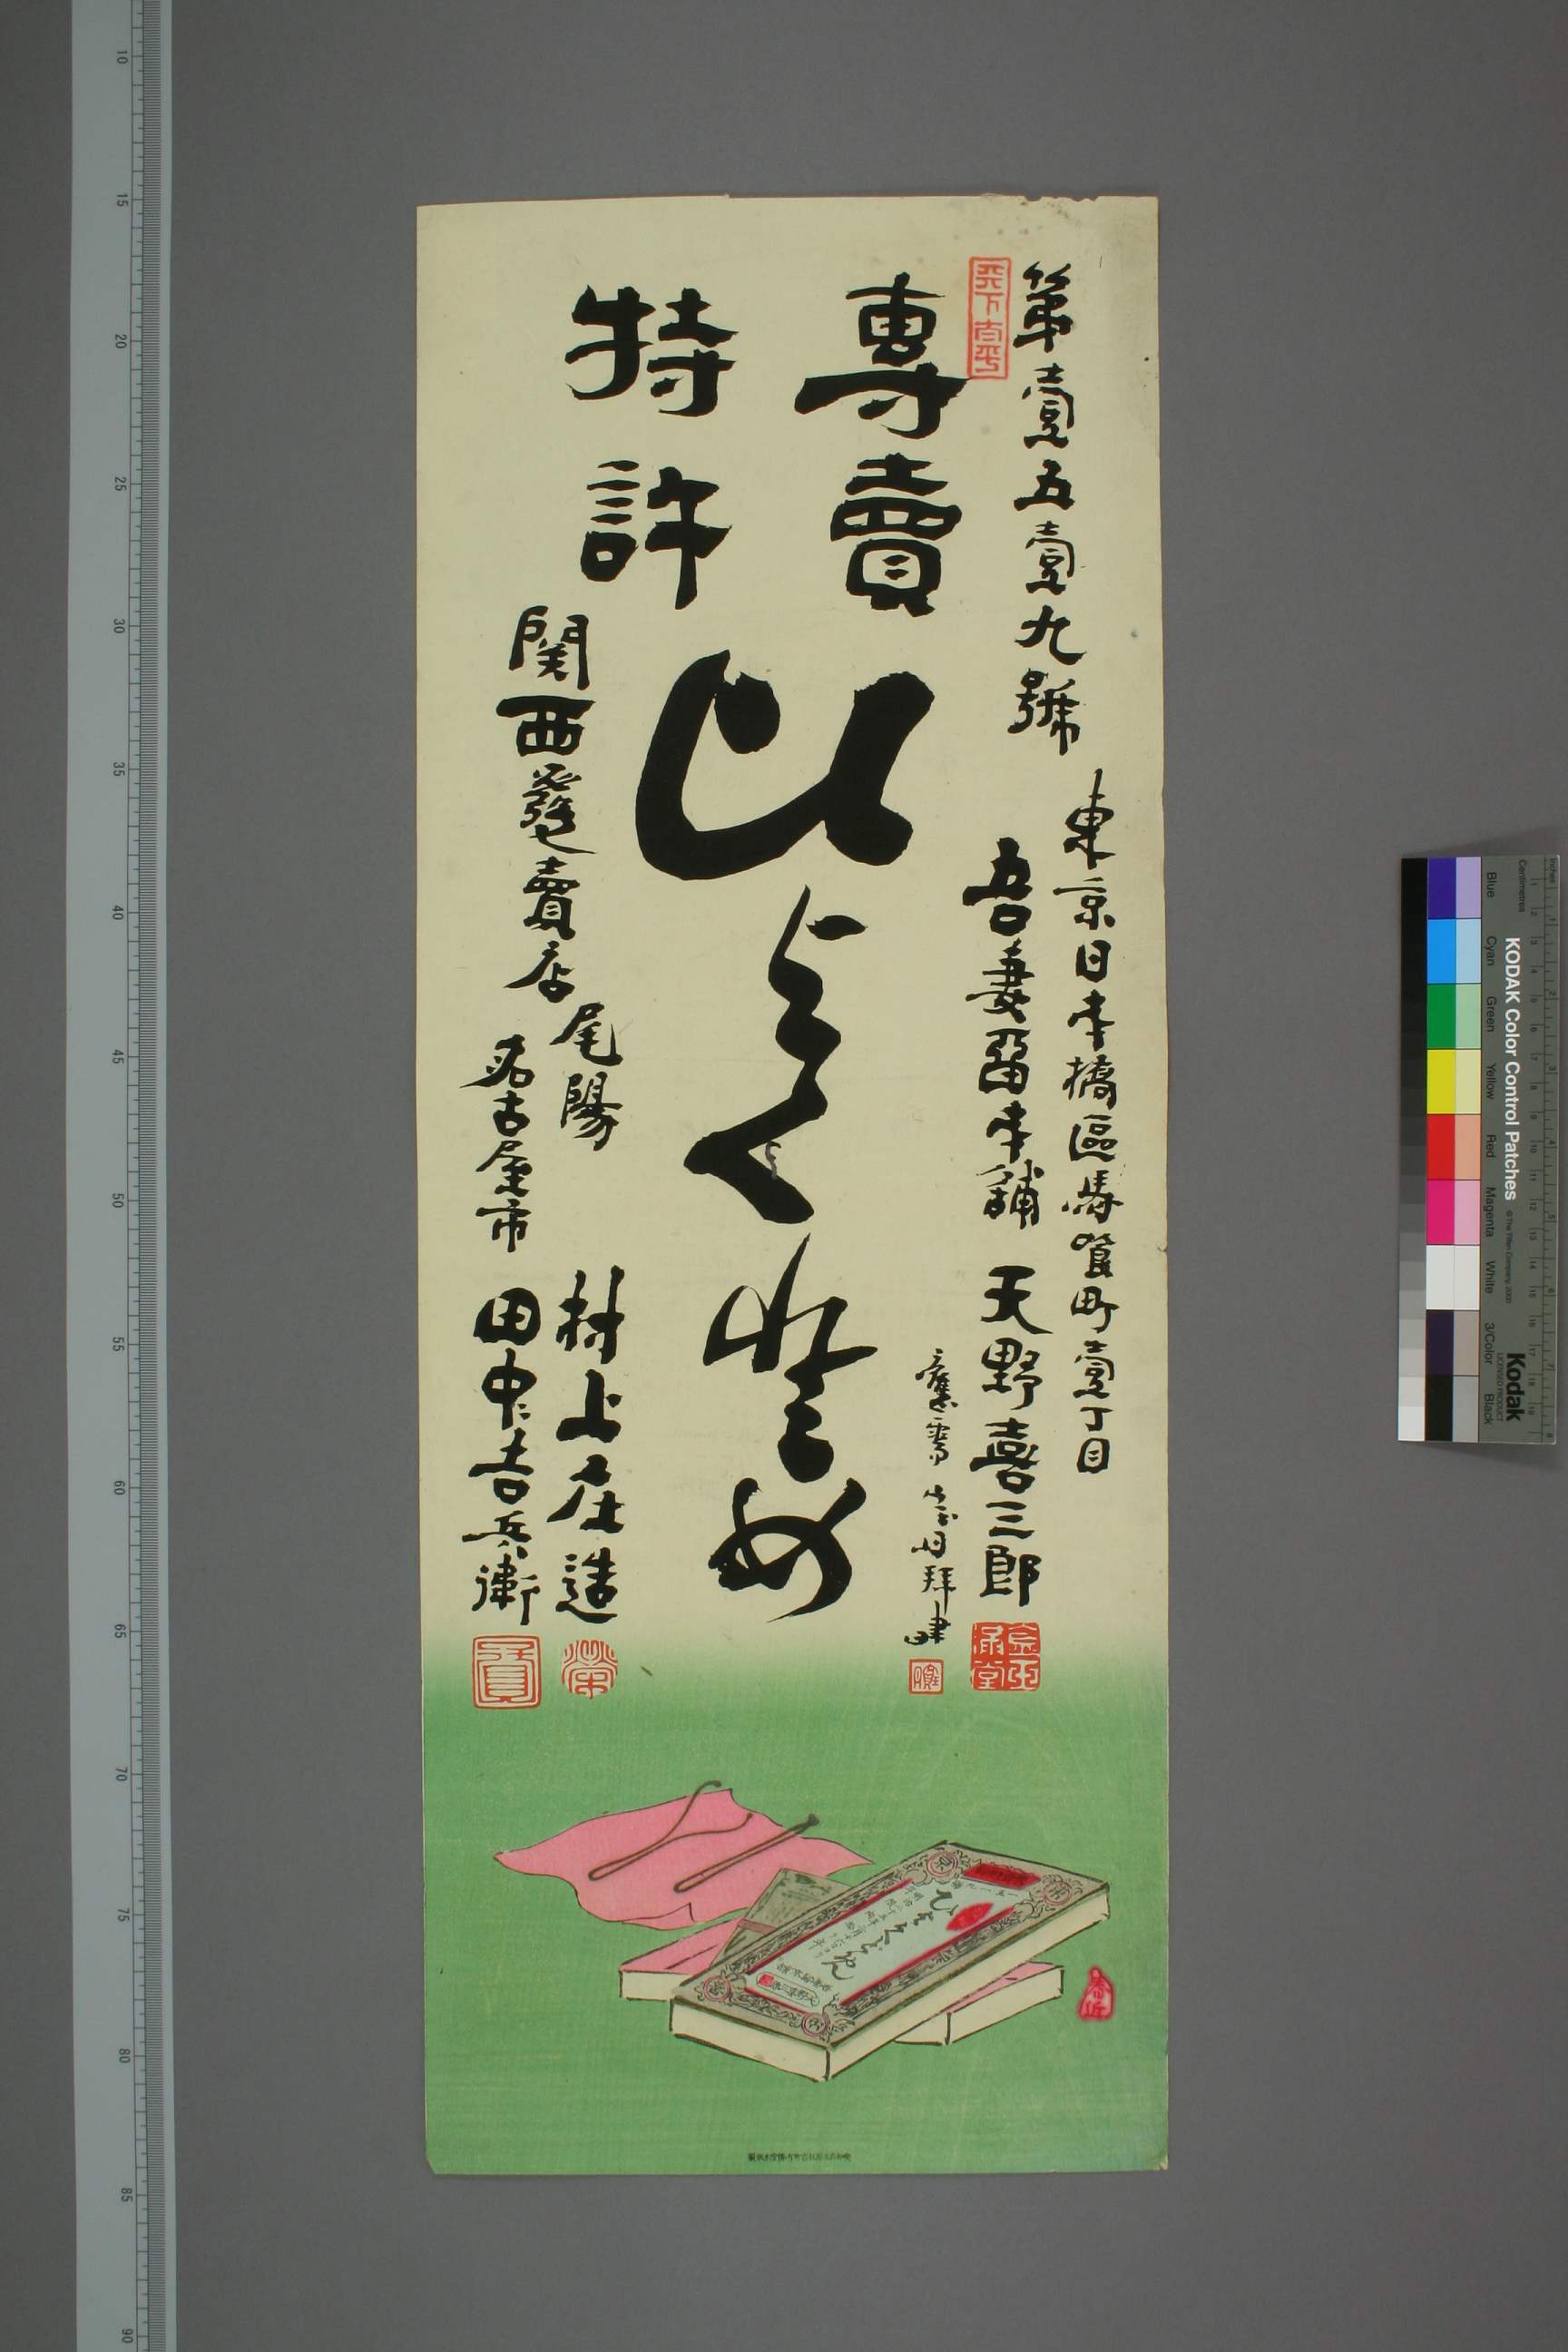 第壹五壹九號
天下太平
東京日本橋區馬喰町壹丁目
吾妻留本舗 天野喜三郎
應需
專賣
特許
ひよく登め
関西發賣店
尾陽 村上庄造
名古屋市 田中吉兵衛
ひよくどめ
KODAK Color Control Patches
Kodak
LICENSED PRODUCT
©The Tiffen Company, 2000
Inches
Centimetres
Blue
Cyan
Green
Yellow
Red
Magenta
White
3/Color
Black